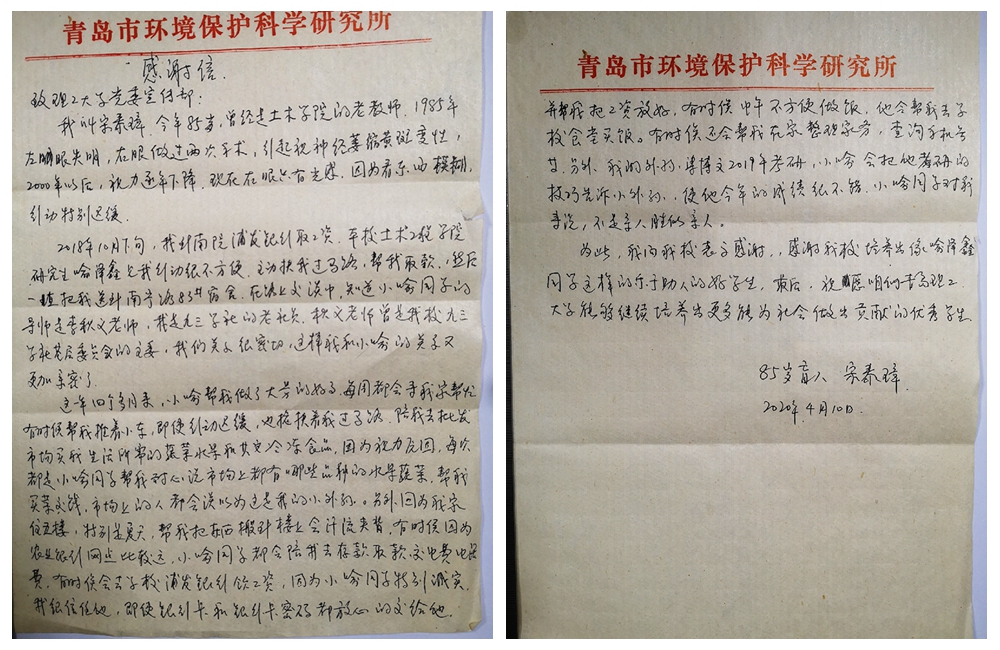 青岛市环境保护科学研究所
感谢信.
致理工大学党委宣传部:
我叫宋泰璋, 今年85岁, 曾经是土木学院的老教师. 1985年
左眼失明, 右眼做过两次手术, 引起视神经萎缩黄斑变性,
2000年以后, 视力逐年下降. 现在右眼只有光感, 因为看东西模糊,
行动特别迟缓.
2018年10月下旬, 我到南院浦发银行取工资. 平校土木工程学院
研究生哈泽鑫见我行动很不方便. 主动扶我过马路, 帮我取款, 然后
一直把我送到南宁路83号宿舍. 在路上交谈中, 知道小喻同学的
导师是李秋义老师, 我是九三学社的老社员. 秋义老师曾是我校九三
学社基层委员会的主委, 我们关系很密切, 这样我和小喻的关系又
更加亲密了.
这一年四个多月来, 小喻帮我做了大量的好事. 每周都会来我家帮忙
有时候帮我推着小车, 即使行动迟缓, 也搀扶着我过马路. 陪我去批发
市场买我生活所需的蔬菜水果和其它冷冻食品, 因为视力原因, 每次
都是小喻同学帮我耐心说市场上都有哪些品种的水果蔬菜, 帮我
买菜交钱, 市场上的人都会误以为这是我的小外孙. 另外, 因为我家
住五楼, 特别是夏天, 帮我把东西搬到楼上会汗流夹背. 有时候因为
农业银行网点比较远, 小喻同学都会陪我去存款取款. 交电费电话
费. 有时候会去学校浦发银行领工资, 因为小喻同学特别诚实.
我很信任他, 即使银行卡和银行卡密码都放心的交给他.
青岛市环境保护科学研究所
并帮我把工资放好. 有时候中午不方便做饭, 他会帮我去学
校食堂买饭. 有时候还会帮我在家整理家务, 查询手机号
等. 另外, 我的外孙, 李博文2019年考研, 小喻会把他考研的
技巧告诉小外孙, 使他今年的成绩很不错. 小喻同学对我
来说, 不是亲人胜似亲人.
为此, 我向我校表示感谢, 感谢我校培养出像哈泽鑫
同学这样的乐于助人的好学生, 最后, 祝愿咱们青岛理工
大学能够继续培养出更多能为社会做出贡献的优秀学生.
85岁盲人 宋泰璋
2020年4月10日.